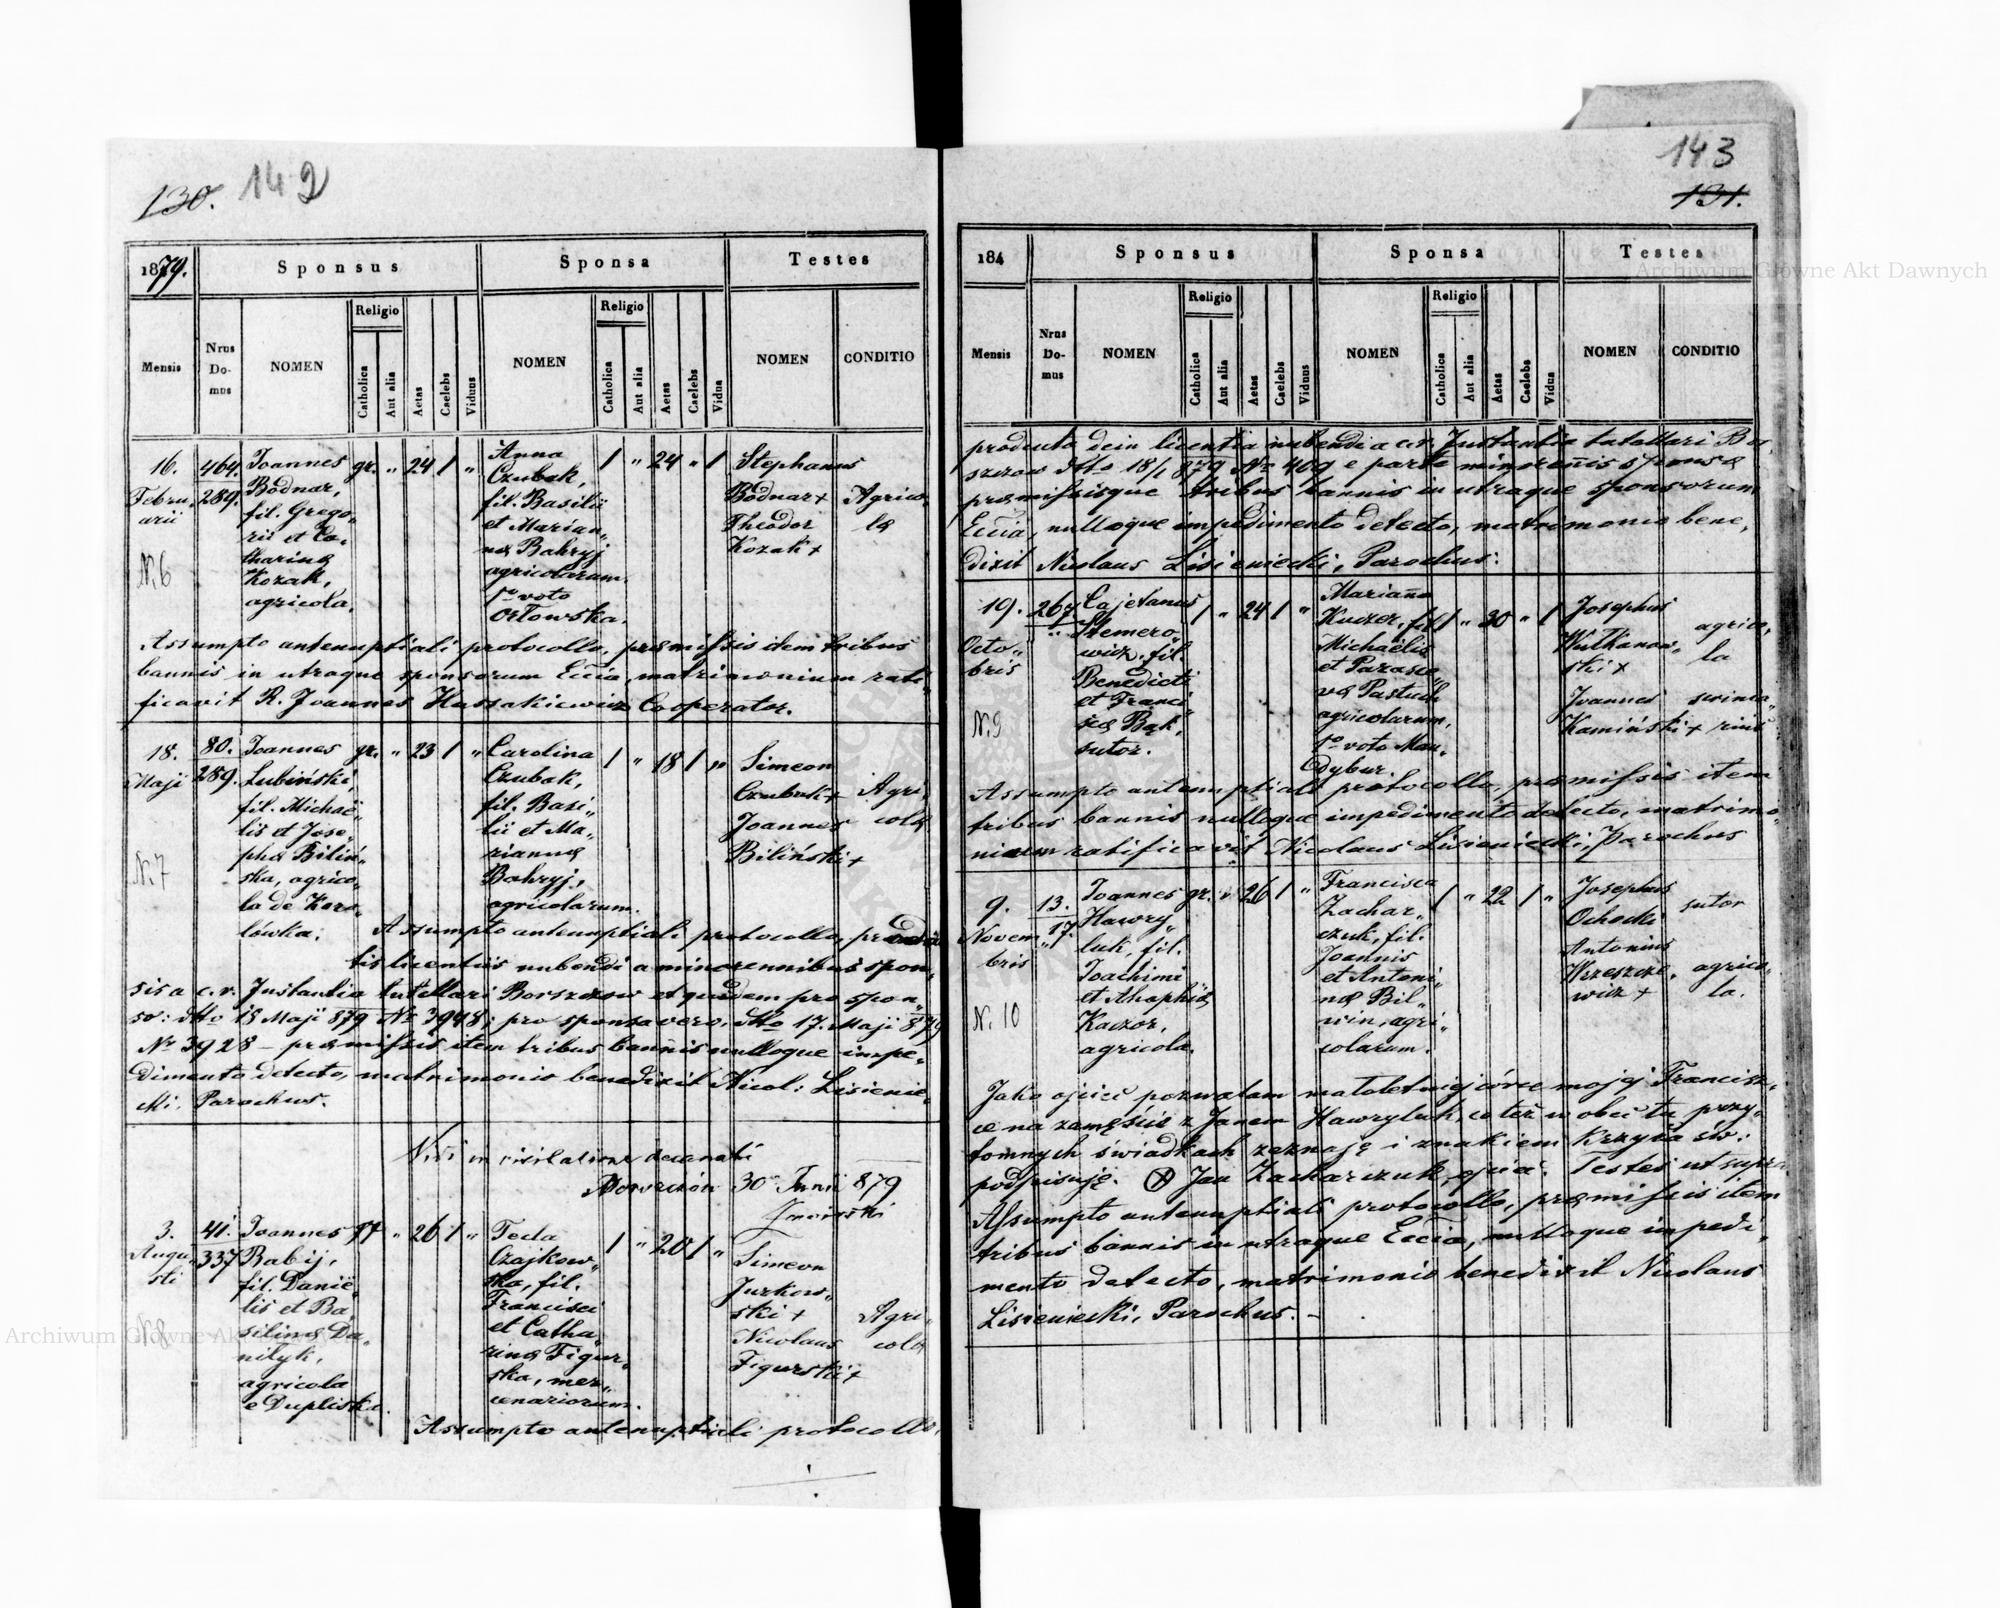 130. 142
1879.
Sponsus
Sponsa
Testes
Mensis
Nrus Do-mus
NOMEN
Religio
Catholica
Aut alia
Aetas
Caelebs
Viduus
NOMEN
Religio
Catholica
Aut alia
Aetas
Caelebs
Vidua
NOMEN
CONDITIO
16.
Febru„
arii
N.6
464.
289.
Joannes
Bodnar,
fil. Grego„
rii et Ca„
tharinæ
Kozak,
agricola,
gr. „ 24 / „
Anna
Czubak,
fil. Basilii
et Marian„
næ Bahryj
agricolarum.
1º voto
Orłowska.
/ „ 24 „ /
Stephanus
Bodnar +
Theodor
Kozak +
Agrico„
læ
Assumpto antenuptiali protocollo, præmissis item tribus
bannis in utraque sponsorum Eccia, matrimonium rati„
ficavit R. Joannes Hussakiewicz Cooperator.
18.
Maji
N.7
80.
289.
Joannes
Lubiński,
fil. Michaë„
lis et Jose„
phæ Biliń„
ska, agrico„
la de Koro„
lówka.
gr. „ 23 / „
Carolina
Czubak,
fil. Basi„
lii et Ma„
riannæ
Bahryj,
agricolarum.
/ „ 18 / „
Simeon
Czubak +
Joannes
Biliński +
Agri„
colæ
Assumpto antenuptiali protocollo,
tis licentiis nubendi a minorennibus spon„
sis a c.r. Instantia tutellari Borszczow et quidem pro spon„
so: dtto 18 Maji 879 Nº 3948; pro sponsa vero. dtto 17. Maji 879
Nº 3928 – præmissis item tribus bannis nulloque impe„
dimento detecto, matrimonio benedixit Nicol: Lisienie„
cki. Parochus.
Vidi in visitatione decanali
30 Junii 879
3.
Augu„
sti
N.8
41.
337
Joannes
Babij,
fil. Danië„
lis et Ba„
silinæ Da„
nilyk,
agricola
e Dupliska.
gr. „ 26 / „
Tecla
Czajkow„
ska, fil.
Francisci
et Catha„
rinæ Figur„
ska, mer„
cenariorum.
/ „ 20 / „
Simeon
Jurkow„
ski +
Nicolaus
Figurski +
Agri„
colæ
Assumpto antenuptiali protocollo,
143
131.
184
Sponsus
Sponsa
Testes
Mensis
Nrus Do-mus
NOMEN
Religio
Catholica
Aut alia
Aetas
Caelebs
Viduus
NOMEN
Religio
Catholica
Aut alia
Aetas
Caelebs
Vidua
NOMEN
CONDITIO
producta dein licentia nubendi a c.r. Instantia tutellari Bor„
szczow dtto 18/1 879 Nº 409 e parte minorennis sponsæ
præmissisque tribus bannis in utraque sponsorum
Eccia, nulloque impedimento detecto, matrimonio bene„
dixit Nicolaus Lisieniecki, Parochus.
19.
Octo„
bris
N.9
267
Cajetanus
wicz, fil.
Benedicti
et Franci„
scæ Bąk,
sutor.
/ „ 24 / „
Marianna
Kuczer, fil.
Michaëlis
et Parasce„
væ Pastuch
agricolarum,
1º voto Man„
dybur.
/ „ 30 „ /
Josephus
ski +
Joannes
Kamiński +
agrico„
la
scrinia„
rius
Assumpto antenuptiali protocollo, præmissis item
tribus bannis nulloque impedimento detecto, matrimo„
nium ratificavit Nicolaus Lisieniecki, Parochus
9.
Novem„
bris
N. 10
13.
17.
Joannes
Hawry„
luk, fil.
Joachimi
et Ahaphiæ
Kaczor,
agricola.
gr. „ 26 / „
Francisca
Zachar„
czuk, fil.
Joannis
et Antoni„
næ Bil„
win, agri„
colarum.
/ „ 22 / „
Josephus
Ochocki
Antonius
Wrzeszcze„
wicz +
sutor
agrico„
la.
Jako ojciec pozwalam małoletniej córce mojej Francisz„
ce na zamęście z Janem Hawryluk, co też w obec tu przy„
tomnych świadkach zeznaję i znakiem krzyża św:
podpisuję. ⊗ Jan Zacharczuk, ojciec. Testes ut supra.
Assumpto antenuptiali protocollo, præmissis item
tribus bannis in utraque Eccia, nulloque impedi„
mento detecto, matrimonio benedixit Nicolaus
Lisieniecki, Parochus. –
Archiwum Główne Akt Dawnych
Archiwum Główne Akt Dawnych